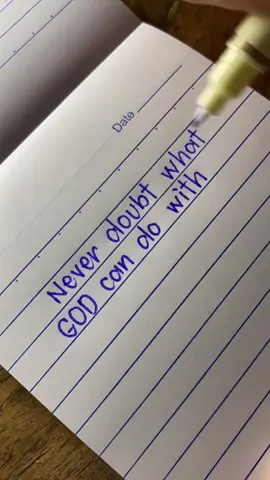 Date
Never doubt what
GOD can do with